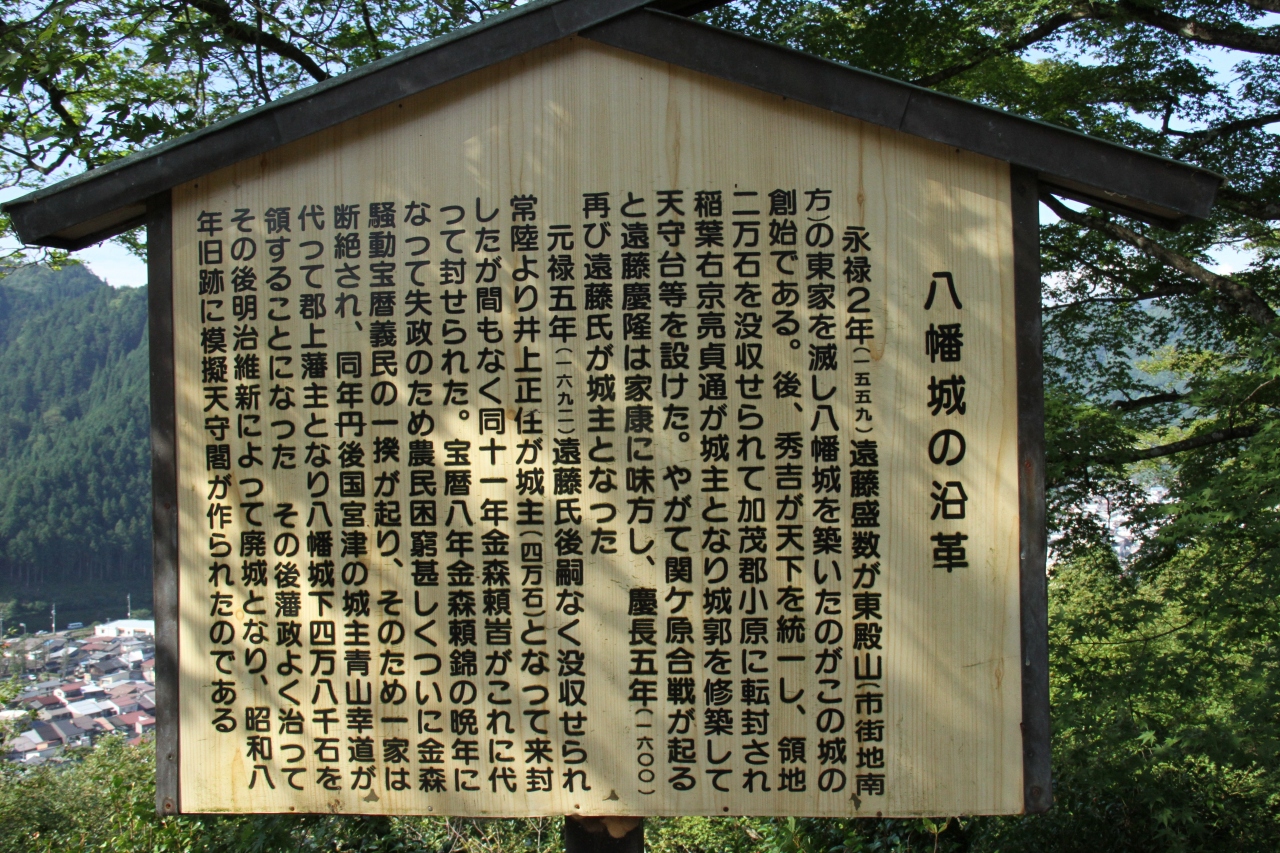 八幡城の沿革
永禄２年(一五五九)遠藤盛数が東殿山(市街地南
方)の東家を滅し八幡城を築いたのがこの城の
創始である。後、秀吉が天下を統一し、領地
二万石を没収せられて加茂郡小原に転封され
稲葉右京亮貞通が城主となり城郭を修築して
天守台等を設けた。やがて関ケ原合戦が起る
と遠藤慶隆は家康に味方し、慶長五年(一六〇〇)
再び遠藤氏が城主となった
元禄五年(一六九二)遠藤氏後嗣なく没収せられ
常陸より井上正任が城主(四万石)となつて来封
したが間もなく同十一年金森頼旹がこれに代
つて封せられた。宝暦八年金森頼錦の晩年に
なつて失政のため農民困窮甚しくついに金森
騒動宝暦義民の一揆が起り、そのため一家は
断絶され、同年丹後国宮津の城主青山幸道が
代つて郡上藩主となり八幡城下四万八千石を
領することになった その後藩政よく治って
その後明治維新によつて廃城となり、昭和八
年旧跡に模擬天守閣が作られたのである